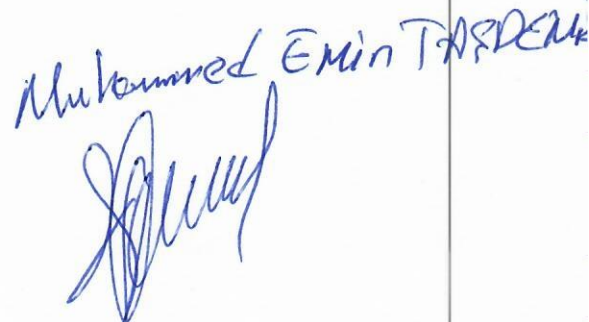 Muhammed Emin TAŞDEMİ